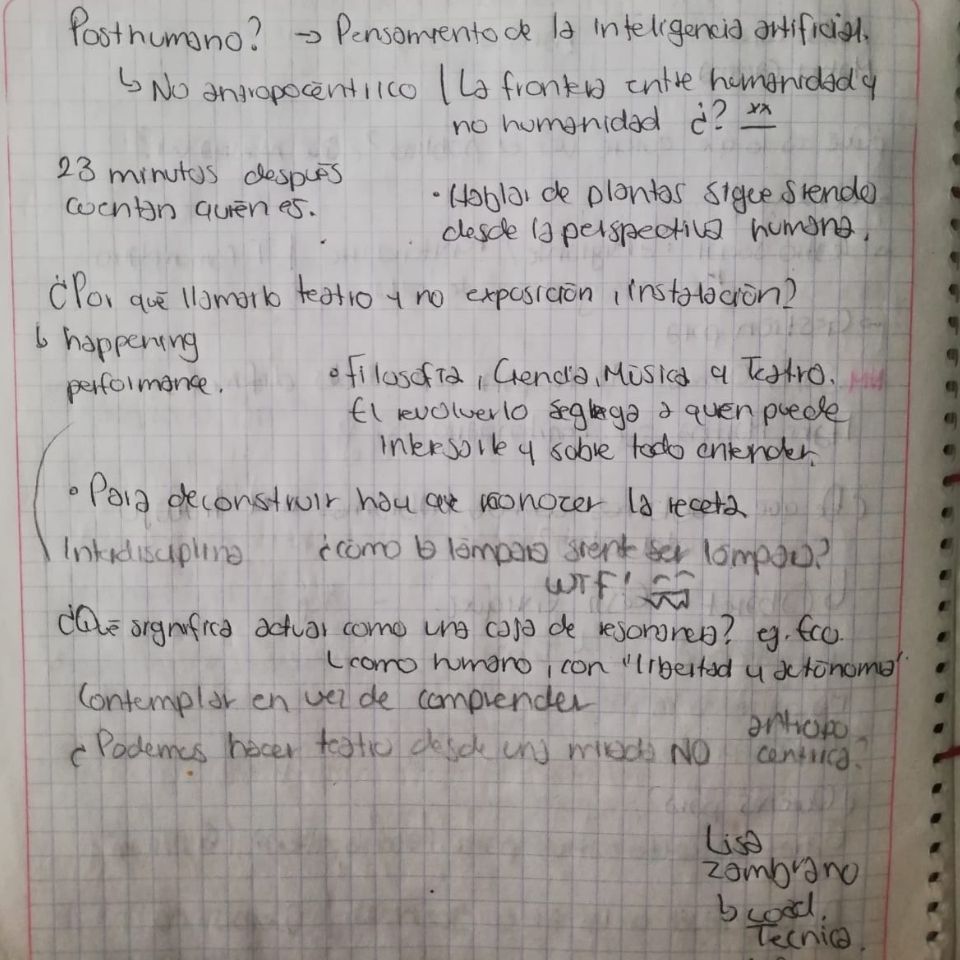 Posthumano? → Pensamiento de la inteligencia artificial.
↳ No antropocēntrico | La frontera entre humanidad y
no humanidad ¿? xx
23 minutos despuēs
cuentan quiēn es.
• Hablar de plantas sigue siendo
desde la perspectiva humana.
¿Por quē llamarlo teatro y no exposiciōn, instalaciōn?
↳ happening
performance.
• filosofīa, Ciencia, Mūsica y Teatro.
El revolverlo segrega a quien puede
interesarle y sobre todo entender.
• Para deconstruir hay que reconocer la receta
Interdisciplina
¿cōmo la lāmpara siente ser lāmpara?
WTF!
¿Quē significa actuar como una caja de resonancia? eg. Eco.
↳ como humano, con "libertad y autonomīa".
Contemplar en vez de comprender
¿Podemos hacer teatro desde una mirada NO antropo
centrica?
Lisa
Zambrano
↳ coord.
Tēcnica.